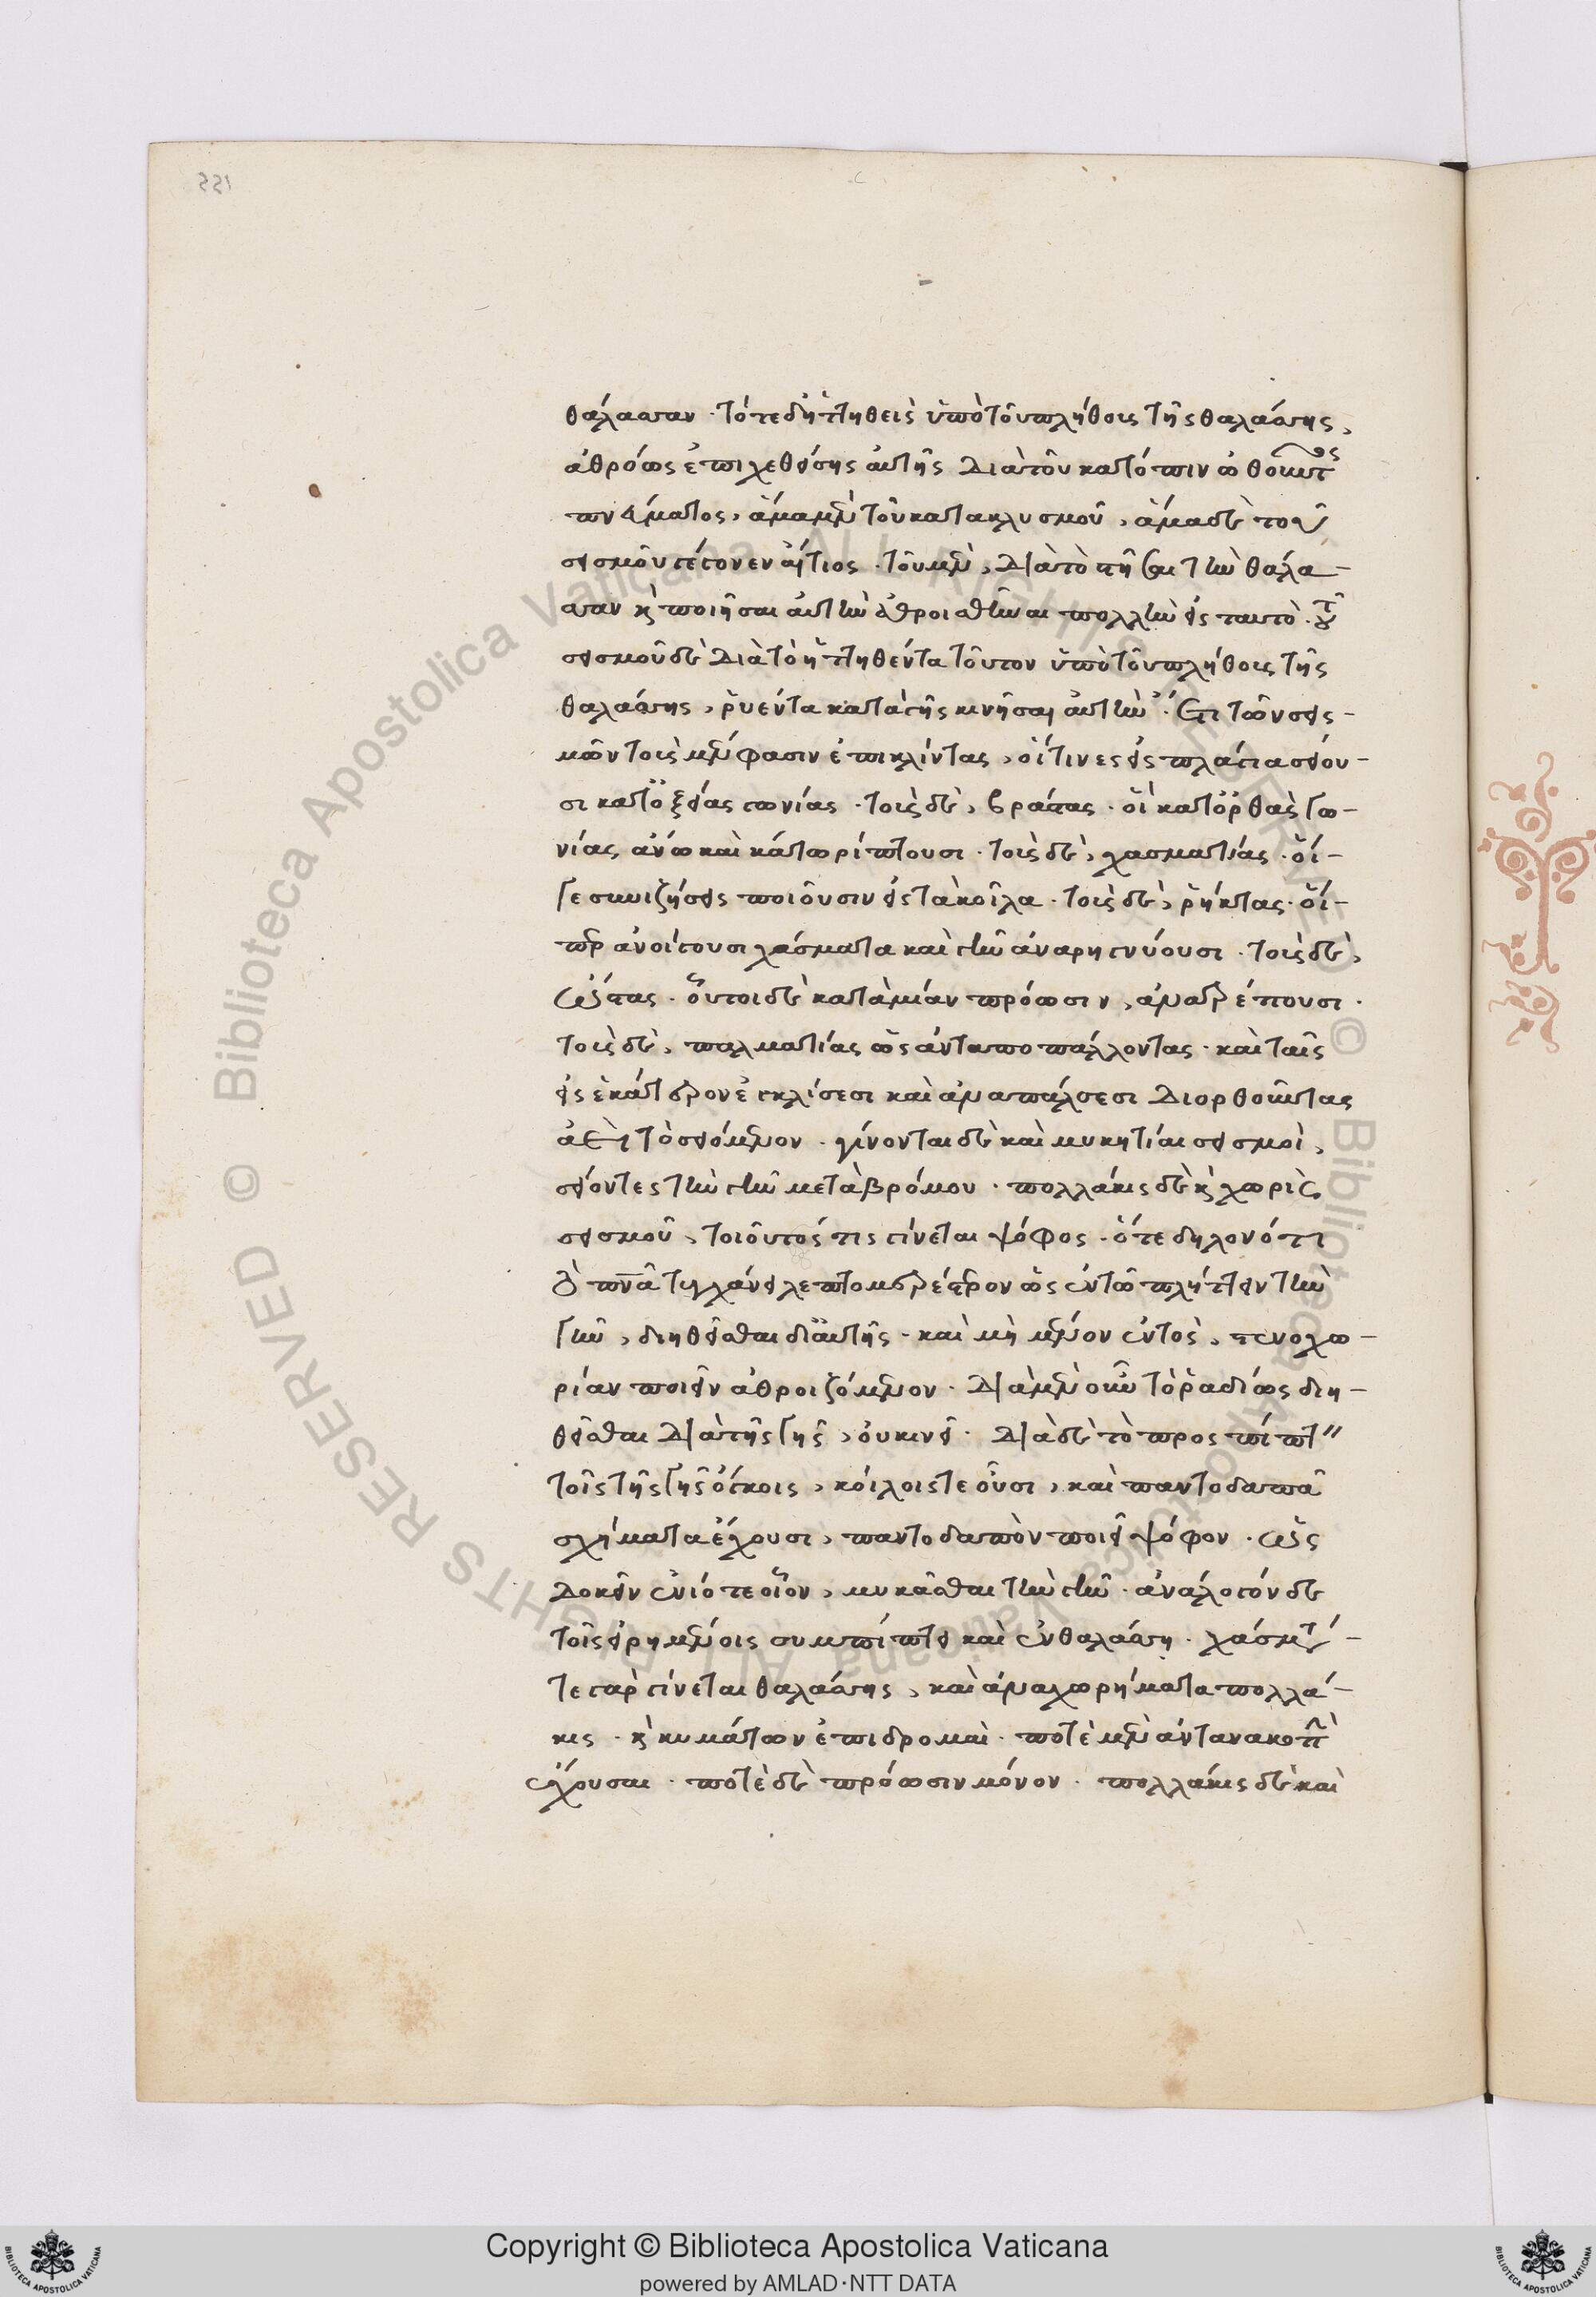 221
θάλασσαν · τότε δὴ ἡττηθεὶς ὑπὸ τοῦ πλήθους τῆς θαλάσσης,
ἀθρόως ἐπιχεθείσης αὐτῆς διὰ τοῦ κατόπιν ὠθοῦντος
πνεύματος, ἅμα μὲν τοῦ κατακλυσμοῦ, ἅμα δὲ τοῦ
σεισμοῦ γέγονεν αἴτιος · τοῦ μὲν, διὰ τὸ στῆσαι τὴν θάλα-
σσαν κ ποιῆσαι αὐτὴν ἀθροισθῆναι πολλὴν εἰς ταυτὸ · τοῦ
σεισμοῦ δὲ διὰ τὸ ἡττηθέντα τοῦτον ὑπὸ τοῦ πλήθους τῆς
θαλάσσης, ῥυέντα κατὰ γῆς κινῆσαι αὐτὴν · ἔτι τῶν σεισ-
μῶν τοὺς μὲν φασιν ἐπικλίντας, οἵτινες εἰς πλάγια σείου-
σι κατ ὀξείας γωνίας · τοὺς δὲ, βράστας · οἳ κατ ὀρθὰς γω-
νίας ἄνω και κάτω ρίπτουσι · τοὺς δὲ, χασματίας · οἵ-
γε συνιζήσεις ποιοῦσιν εἰς τὰ κοῖλα · τοὺς δὲ, ῥήκτας · οἵ-
περ ἀνοίγουσι χάσματα καὶ γῆν ἀναρηγνύουσι · τοὺς δὲ,
ὤστας · οὗτοι δὲ κατὰ μίαν πρόωσιν, ἀνατρέπουσι ·
τοὺς δὲ, παλματίας ὡς ἀνταποπάλλοντας · καὶ ταῖς
εἰς ἑκάτερον ἐγκλίσεσι καὶ ἀναπάλσεσι διορθοῦντας
ἀεὶ τὸ σειόμενον · γίνονται δὲ καὶ μυκητίαι σεισμοὶ,
σείοντες τὴν γῆν μετὰ βρόμου · πολλάκις δὲ κ χωρὶς
σεισμοῦ, τοιοῦτός τις γίνεται ψόφος · ὅτε δηλονότι
τὸ πνᾶ τυγχάνει λεπτομερέστερον ὡς ἐν τῶ πλήττειν τὴν
γῆν, διηθεῖσθαι δι αὐτῆς · καὶ μὴ μένον ἐντὸς, στενοχω-
ρίαν ποιεῖν ἀθροιζόμενον · διὰ μὲν οὖν τὸ ῥαδίως διη-
θεῖσθαι διὰ τῆς γῆς, οὐ κινεῖ · διὰ δὲ τὸ προσπίπτειν
τοῖς τῆς γῆς ὄγκοις, κοίλοις τε οὖσι, καὶ παντοδαπὰ
σχήματα ἔχουσι, παντοδαπὸν ποιεῖ ψόφον · ὡς
δοκεῖν ἐνίοτε οἷον, μυκᾶσθαι τὴν γῆν · ἀνάλογόν δε
τοῖς εἰρημένοις συμπίπτει καὶ ἐν θαλάσση · χάσματά-
τε γαρ γίνεται θαλάσσης, καὶ ἀναχωρήματα πολλά-
κις · κ κυμάτων ἐπιδρομαὶ · ποτὲ μὲν ἀντανακοπὴν
ἔχουσαι · ποτὲ δὲ πρόωσιν μόνον · πολλάκις δὲ καὶ
Copyright © Biblioteca Apostolica Vaticana
powered by AMLAD·NTT DATA